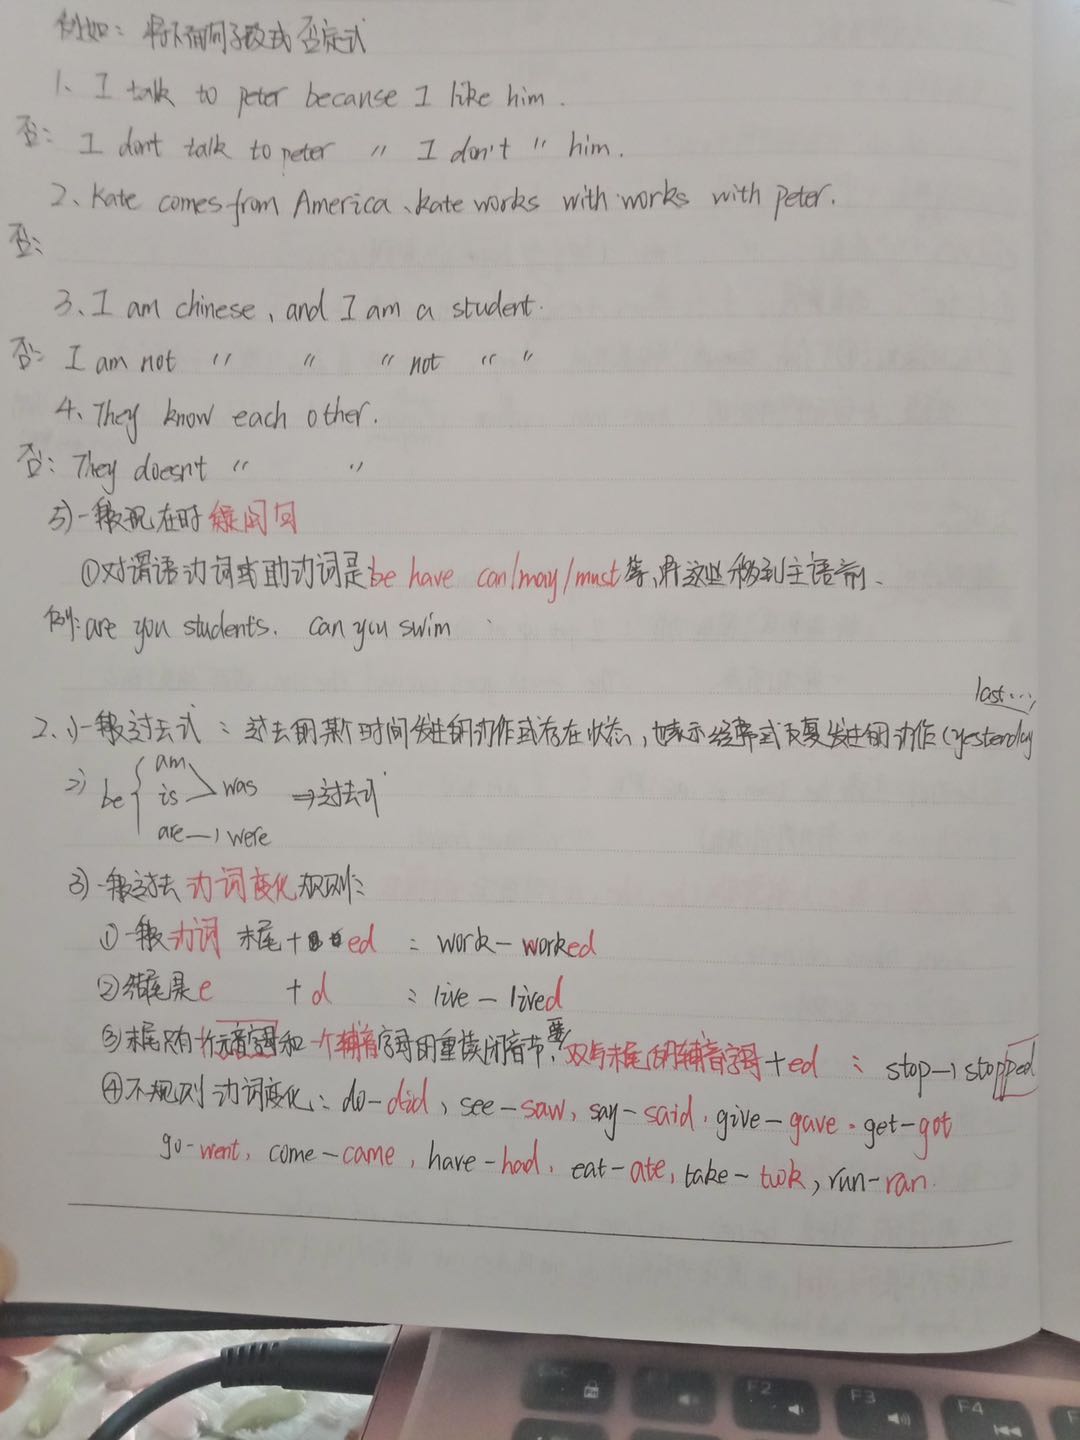 例如：将下面句子改成否定式
1、I talk to peter because I like him.
否：I don't talk to peter 〃 I don't 〃 him.
2、Kate comes from America、Kate works with works with peter.
否：
3、I am chinese, and I am a student.
否：I am not 〃 〃 〃 not 〃 〃
4、They know each other.
否：They doesn't 〃 〃
5)一般现在时疑问句
①对谓语动词或助动词是be have can/may/must等,将这些移到主语前、
例:are you students. can you swim
last...,
2、1)一般过去式：过去的某个时间发生的动作或存在状态,也表示经常或反复发生的动作(yesterday
2) be { am is > was ⇒过去式
are → were
3)一般过去动词变化规则：
①一般动词 末尾+ed : work-worked
②结尾是e +d : live-lived
③末尾只有一个元音字母和一个辅音字母的重读闭音节,要双写末尾的辅音字母+ed : stop→stopped
④不规则动词变化：do-did, see-saw, say-said. give-gave. get-got
go-went, come-came, have-had, eat-ate, take-took, run-ran.
esc F1 F2 F3 F4